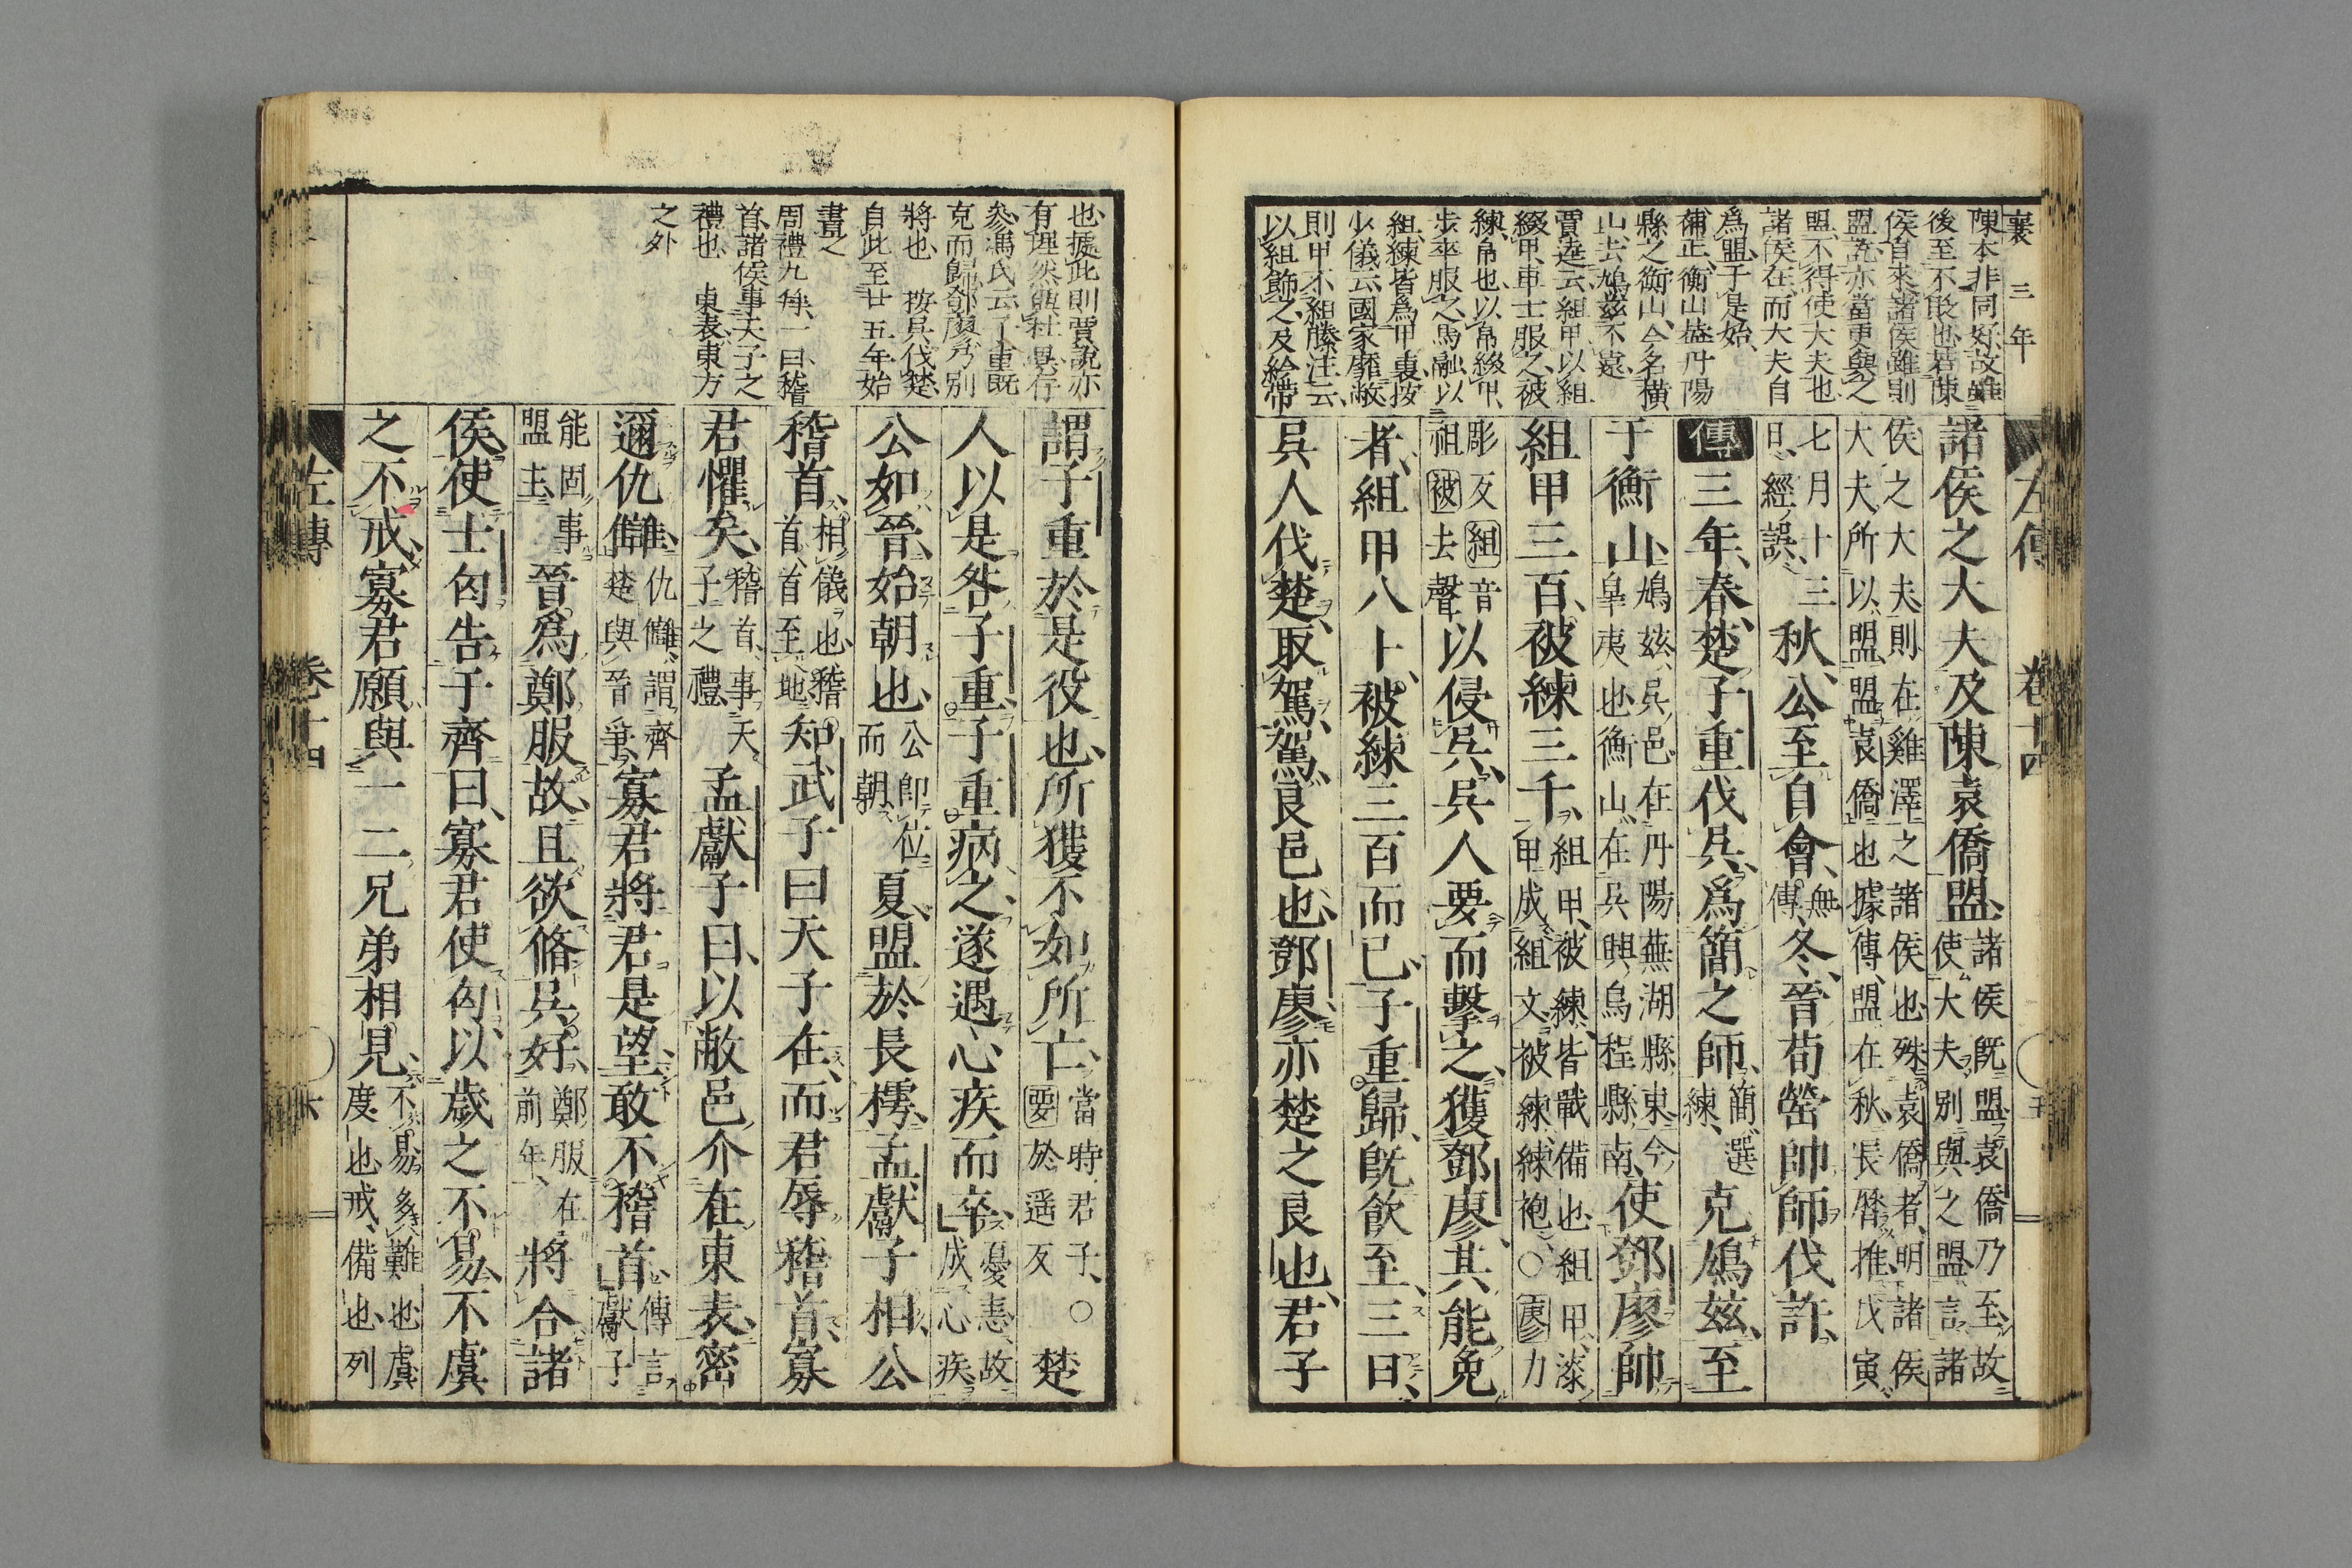 襄三年
陳本非同好故雖
後至不敢也若陳
侯自來諸侯雖則
盟訖亦當更與之
盟不得使大夫也
諸侯在而大夫自
爲盟于是始
補正衡山蓋丹陽
縣之衡山今名橫
山去鳩玆不遠
賈逵云組甲以組
綴甲車士服之被
練帛也以帛綴甲
步卒服之馬融以
組練皆爲甲裏按
少儀云國家靡敝
則甲不組縢注云
以組飾之及紟帶
左傳 卷十四 五
諸侯之大夫及陳袁僑盟諸侯既盟袁僑乃至故使大夫別與之盟言諸
侯之大夫則在雞澤之諸侯也殊袁僑者明諸侯大夫所以盟盟袁僑也據傳盟在秋長曆推戊寅
七月十三日經誤秋公至自會無傳冬晉荀罃帥師伐許
傳三年春楚子重伐吳爲簡之師簡選練克鳩玆至
于衡山鳩玆吳邑在丹陽蕪湖縣東今皐夷也衡山在吳興烏程縣南使鄧廖帥
組甲三百被練三千組甲被練皆戰備也組甲漆甲成組文被練練袍○廖力
彫反組音祖被去聲以侵吳吳人要而擊之獲鄧廖其能免
者組甲八十被練三百而已子重歸既飮至三日
吳人伐楚取駕駕良邑也鄧廖亦楚之良也君子
也據此則賈說亦
有理然與杜異存
參馮氏云子重既
克而歸鄧廖乃別
將也 按吳伐楚
自此至廿五年始
書之
周禮九拜一曰稽
首諸侯事天子之
禮也 東表東方
之外
謂子重於是役也所獲不如所亡當時君子○要於遥反楚
人以是咎子重子重病之遂遇心疾而卒憂恚故成心疾
公如晉始朝也公卽位而朝夏盟於長樗孟獻子相公
稽首相儀也稽首首至地知武子曰天子在而君辱稽首寡
君懼矣稽首事天子之禮孟獻子曰以敝邑介在東表密
邇仇讎仇讎謂齊楚與晉爭寡君將君是望敢不稽首傳言獻子
能固事盟主晉爲鄭服故且欲脩吳好鄭服在前年將合諸
侯使士匄告于齊曰寡君使匄以歲之不易不虞
之不戒寡君願與一二兄弟相見不易多難也虞度也戒備也列
左傳 卷十四 六